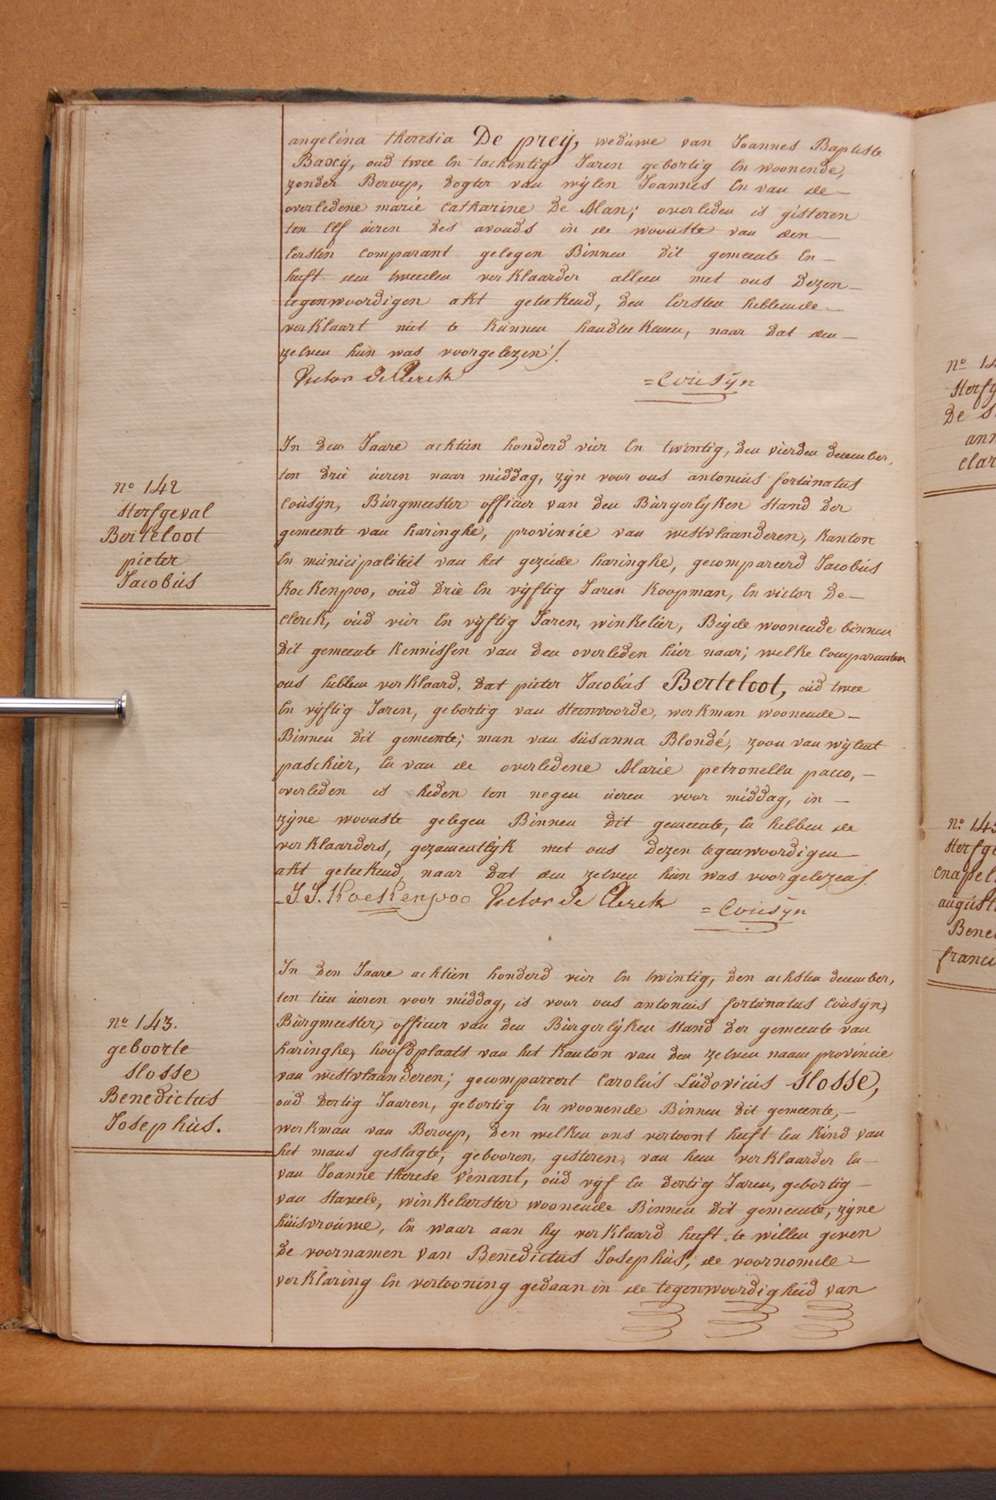 angelina theresia De preÿ, weduwe van Joannes Baptiste
Baxcÿ, oud twee en tachentig Jaren gebortig en woonende,
zonder Beroep, dogter van wÿlen Joannes en van de
overledene marie catharine De Man; overleden is gisteren
ten elf uren des avonds in de wooste van den
Eersten comparant gelegen Binnen dit gemeente en
heeft den tweeden verklaarder alleen met ons Dezen
tegenwoordigen akt geteekend, den Eersten hebbende
verklaart niet te kúnnen handteekenen, naar dat den
zelven hún was voorgelezen /.
Victor de Clerck = Coúsÿn
N° 142
Sterfgeval
Berteloot
pieter
Jacobús
In den Jaare achtien honderd vier en twintig, den vierden december,
ten drie úeren naar middag, zÿn voor ons antonius fortúnatus
Coúsÿn, Búrgmeester officier van den Búrgerlÿken Stand der
gemeente van haringhe, provincie van westvlaanderen, kanton
en múnicipaliteit van het gezeide haringhe, gecompareerd Jacobús
Koekenpoo, oúd drie en vÿftig Jaren Koopman, en victor De
Clerck, oúd vier en vÿftig Jaren, winkelier, Beÿde woonende binnen
dit gemeente kennissen van den overleden hier naar; welke Comparanten
ons hebben verklaard, dat pieter Jacobús Berteloot, oúd twee
en vÿftig Jaren, gebortig van Steenvoorde, werkman woonende
Binnen dit gemeente; man van súsanna Blondé, zoon van wÿlent
paschier, en van de overledene Marie petronella pacco,
overleden is heden ten negen úeren voor middag, in
zÿne wooste gelegen Binnen dit gemeente, en hebben de
verklaarders, gezamentlÿk met ons dezen tegenwoordigen
akt geteekend, naar dat den zelven hún was voorgelezen /.
J. J. Koekenpoo Victor de Clerck = Coúsÿn
N° 143.
geboorte
Slosse
Benedictus
Josephús.
In den Jaare achtien honderd vier en twintig, den achsten december,
ten tien úeren voor middag, is voor ons antoniús fortúnatus Coúsÿn,
Búrgmeester, officier van den Búrgerlÿken stand der gemeente van
haringhe, hoofdplaats van het kanton van den zelven naam provincie
van westvlaanderen; gecompareert Carolús Lúdovicús Slosse,
oud dertig Jaaren, gebortig en woonende Binnen dit gemeente,
werkman van Beroep, den welken ons vertoont heeft een kind van
het mans geslagte, gebooren gisteren, van hem verklaarder en
van Joanne therese Venant, oúd vÿf en dertig Jaren, gebortig
van Stavele, winkelierster woonende Binnen dit gemeente, zÿne
húisvroúwe, en waar aan hÿ verklaard heeft te willen geven
de voornamen van Benedictus Josephús; de voornomde
verklaring en vertooning gedaan in de tegenwoordigheid van
N° 14
Sterfg
De S
ann
clar
N° 145
Sterfge
Chapel
augúst
Bened
franc